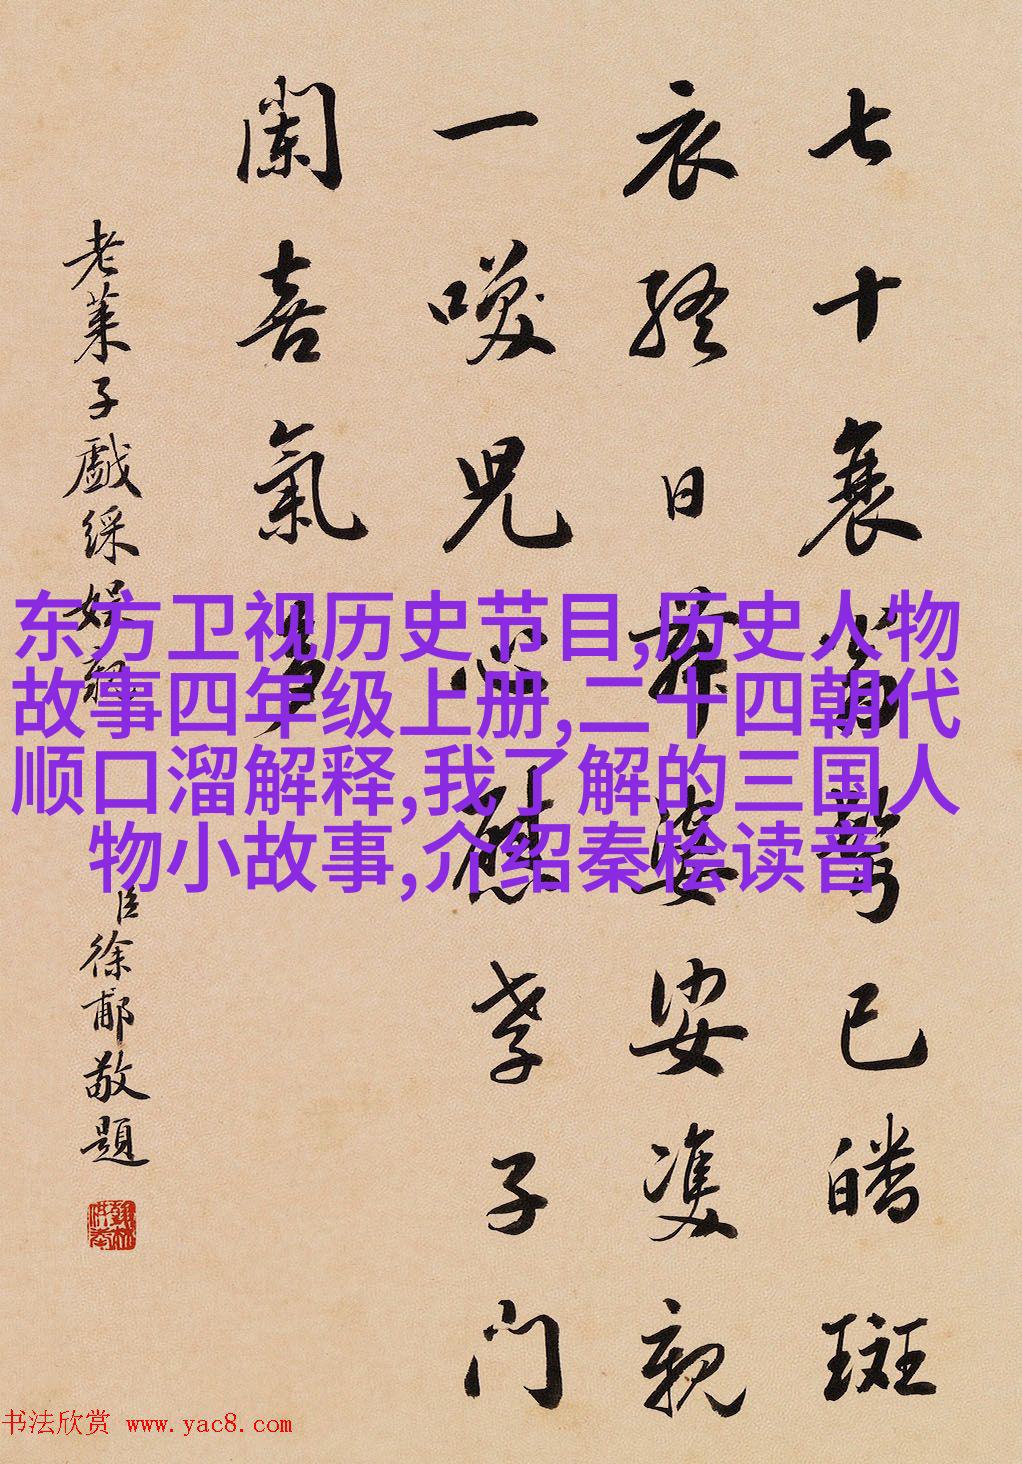 七十衰翁鬢已皤斑
衣終日舞婆娑雙親
一咲兒心慰孝子門
闌喜氣多
老萊子戲綵娛親 臣徐郙敬題
东方卫视历史节目,历史人物
故事四年级上册,二十四朝代
顺口溜解释,我了解的三国人
物小故事,介绍秦桧读音
书法欣赏 www.yac8.com